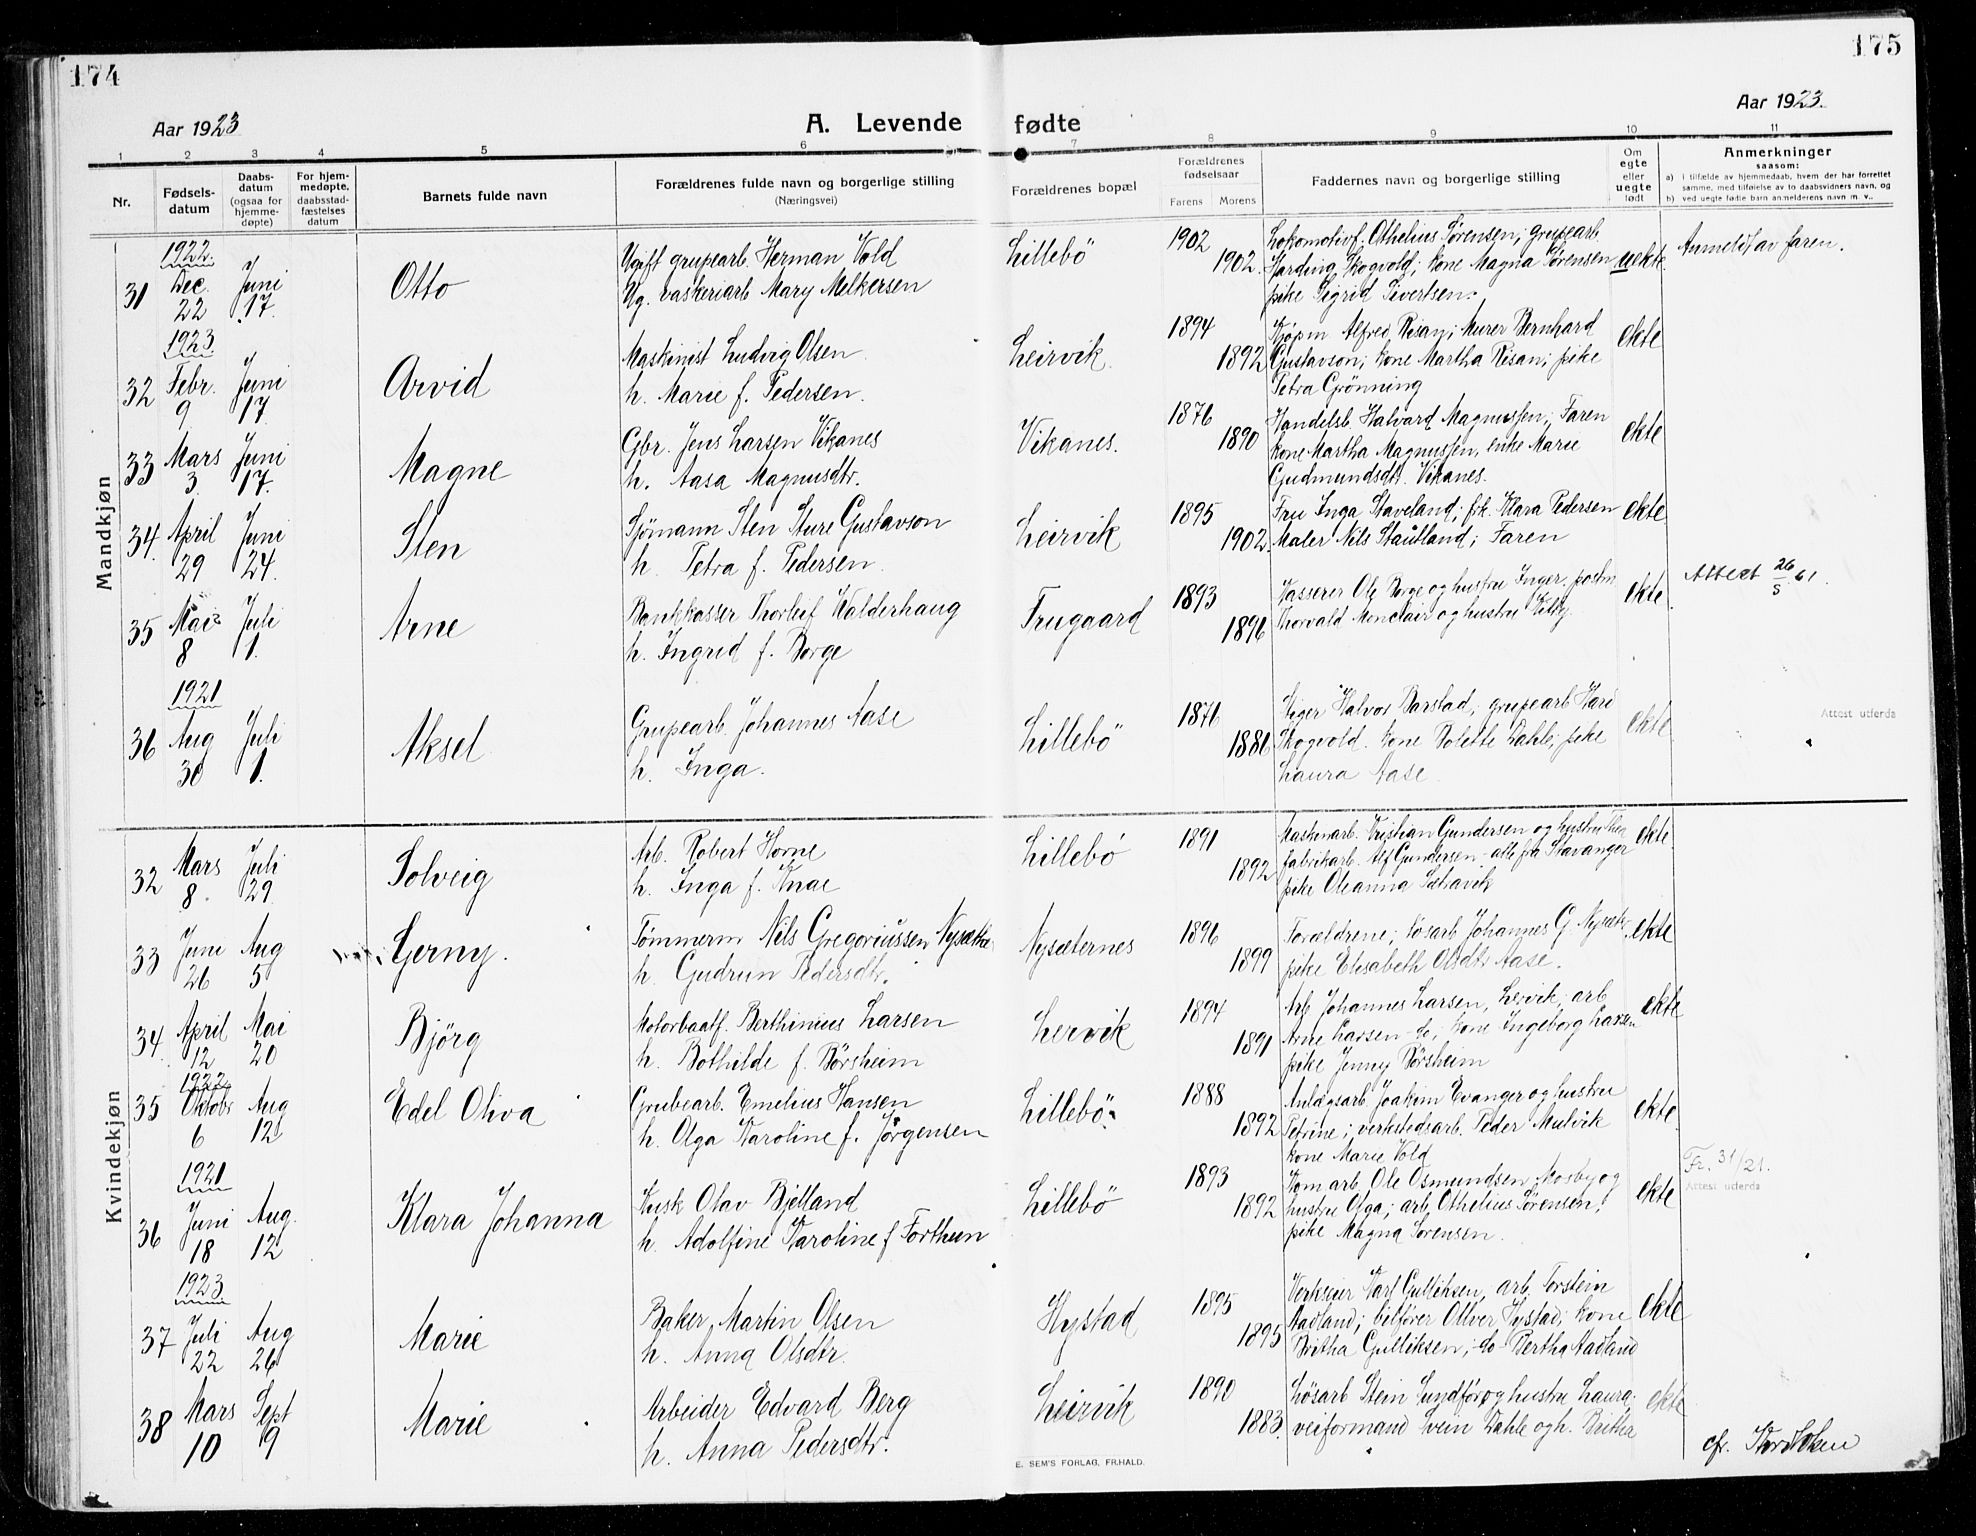 174
175
Aar 1923
A. Levende fødte
Aar 1923.
1 2 3 4 5 6 7 8 9 10 11
Nr.
Fødsels-
datum
Daabs-
datum
(ogsaa for
hjemme-
døpte)
For hjem-
medøpte,
daabsstad-
fæstelses
datum
Barnets fulde navn
Forældrenes fulde navn og borgerlige stilling
(Næringsvei)
Forældrenes bopæl
Forældrenes
fødselsaar
Farens Morens
Faddernes navn og borgerlige stilling
Om
egte
eller
uegte
født
Anmerkninger
saasom:
a) i tilfælde av hjemmedaab, hvem der har forrettet
samme, med tilføielse av to daabsvidners navn, og
b) ved uegte fødte barn anmelderens navn m. v..
Mandkjøn
31
1922.
Dec.
22
Juni
17.
Otto
Ugift grupearb. Herman Vold
Ug. vaskeriarb Mary Melkersen
Lillebö
1902
1902.
Lokomotivf. Othelius Sørensen; grupearb.
Harding Skogvold; kone Magna Sørensen
pike Sigrid Sivertsen.
uekte.
Anmeldt av faren.
32
1923
Febr.
9
Juni
17
Arvid
Maskinist Ludvig Olsen
h. Marie f. Pedersen.
Leirvik.
1894
1892
Kjøpm Alfred Risan; Murer Bernhard
Gustavson; kone Martha Risan; pike
Petra Grönning
ekte
33
Mars
3
Juni
17.
Magne
Gbr. Jens Larsen Vikanes
h. Aasa Magnusdtr.
Vikanes.
1876
1890
Handelsb. Halvard Magnussen; Faren
kone Martha Magnussen, enke Marie
Gudmundsdtr. Vikanes.
ekte
34.
April
29
Juni
24.
Sten
Sjömann Sten Sture Gustavson
h. Petra f. Pedersen.
Leirvik
1895
1902.
Fru Inga Staveland; frk. Klara Pedersen
Maler Nils Stautland; Faren
ekte
35
Mai
8
Juli
1.
Arne
Bankkasser Thorleif Walderhaug
h. Ingrid f. Borge
Frugaard
1893
1896
Kasserer Ole Borge og hustru Inger, postm
Thorvald Monclair og hustru
ekte
Attest 26/5 61.
36
1921
Aug
30
Juli
1.
Aksel
Grupearb. Johannes Aase
h. Inga.
Lillebö
1876
1886
Stiger Halvor Barstad; grupearb Hari
Skogvold. kone Bolette Dahle; pike
Laura Aase.
ekte
Attest utferda
Kvindekjøn
32
Mars
8.
Juli
29.
Solveig
Arb. Robert Horne
h. Inga f. Knae
Lillebö
1891
1892
Maskinarb. Kristian Gundersen og hustru Thea
fabrikarb. Alf Gundersen - alle fra Stavanger
pike Oleanna Sætravik
ekte.
33
Juni
26
Aug
5
Gerny.
Tömmerm Nils Gregoriussen Nysæther
h. Gudrun Pedersdtr.
Nysæternes
1896
1899
Forældrene; løsarb Johannes G. Nysæth.
pike Elisabeth Olsdtr Aase.
ekte
34.
April
12
Mai
20
Björg
Motorbaatf. Berthinius Larsen
h. Bothilde f. Börsheim
Lervik
1894
1891
Arb Johannes Larsen, Lervik; arb
Arne Larsen do; kone Ingeborg Larsen
pike Jenny Börsheim
ekte
35
1922
Oktobr
6
Aug
12
Edel Oliva
Grubearb. Emelius Hansen
h. Olga Karoline f. Jörgensen
Lillebö
1888
1892
Anlægsarb Joakim Evanger og hustru
Petrine; verkstedsarb. Peder Mulvik
kone Marie Vold
ekte
36
1921
Juni
18
Aug.
12
Klara Johanna
Kusk Olav Bjelland
h. Adolfine Karoline f Forthun
Lillebö
1893
1892
Tomarb. Ole Osmundsen Mosby og
hustru Olga; arb. Othelius Sørensen;
pike Magna Sørensen.
ekte
Fr. 31/21.
Attest utferda
37
1923.
Juli
22
Aug
26
Marie
Baker, Martin Olsen
h. Anna Olsdtr.
Hystad
1895
1895
Verkseier Karl Gulliksen, arb. Torstein
Aadland; bilförer Oliver Hystad; kone
Britha Gulliksen; do- Bertha Aadland
ekte
38
Mars
10
Sept
9
Marie
Arbeider Edvard Berg
h. Anna Pedersdtr.
Leirvik
1890
1883.
Lösarb Stein Sundför og hustru Laura;
veiformand Svein Dahle og h. Britha
ekte
cfr.
E. SEM'S FORLAG, FR.HALD.